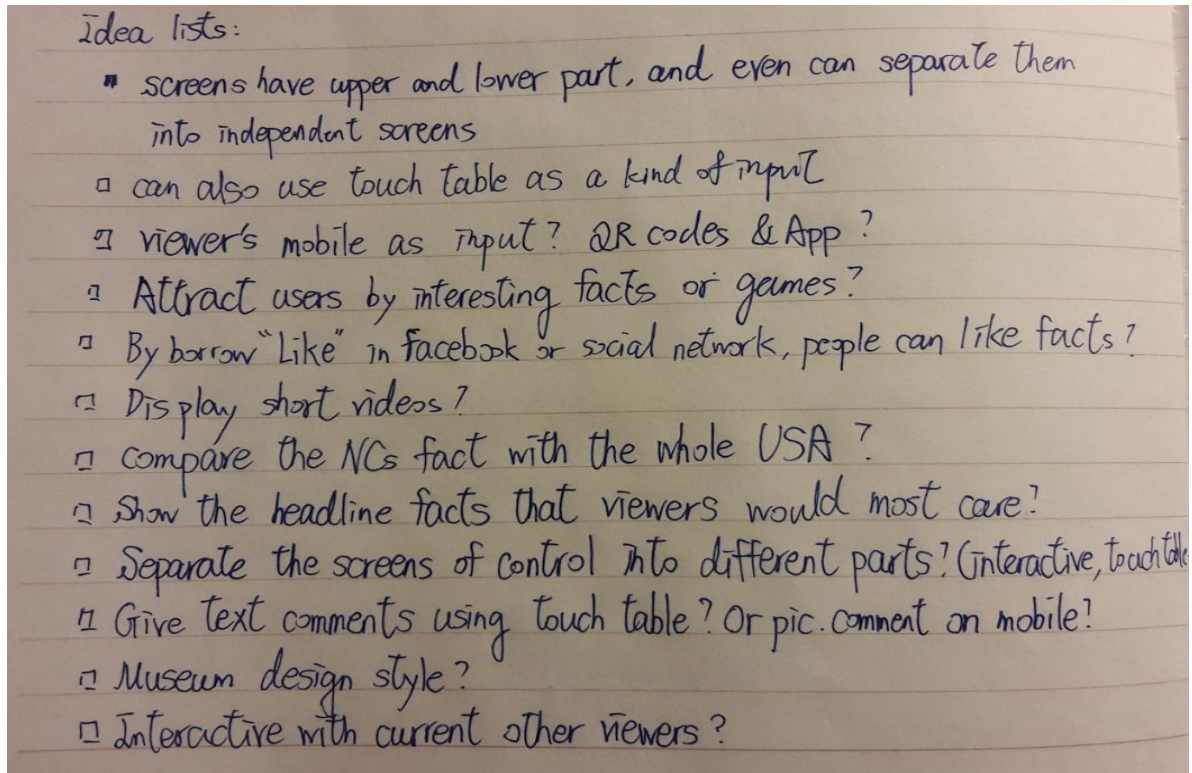 idea lists:
screens have upper and lower part, and even can separate them
into independent screens
can also use touch table as a kind of input
viewer's mobile as input? QR codes & App?
Attract users by interesting facts or games?
By borrow "Like" in facebook or social network, people can like facts?
Display short videos?
compare the NCs fact with the whole USA?
Show the headline facts that viewers would most care?
Separate the screens of control into different parts? (interactive, touch table
Give text comments using touch table? Or pic. comment on mobile?
Museum design style?
Interactive with current other viewers?